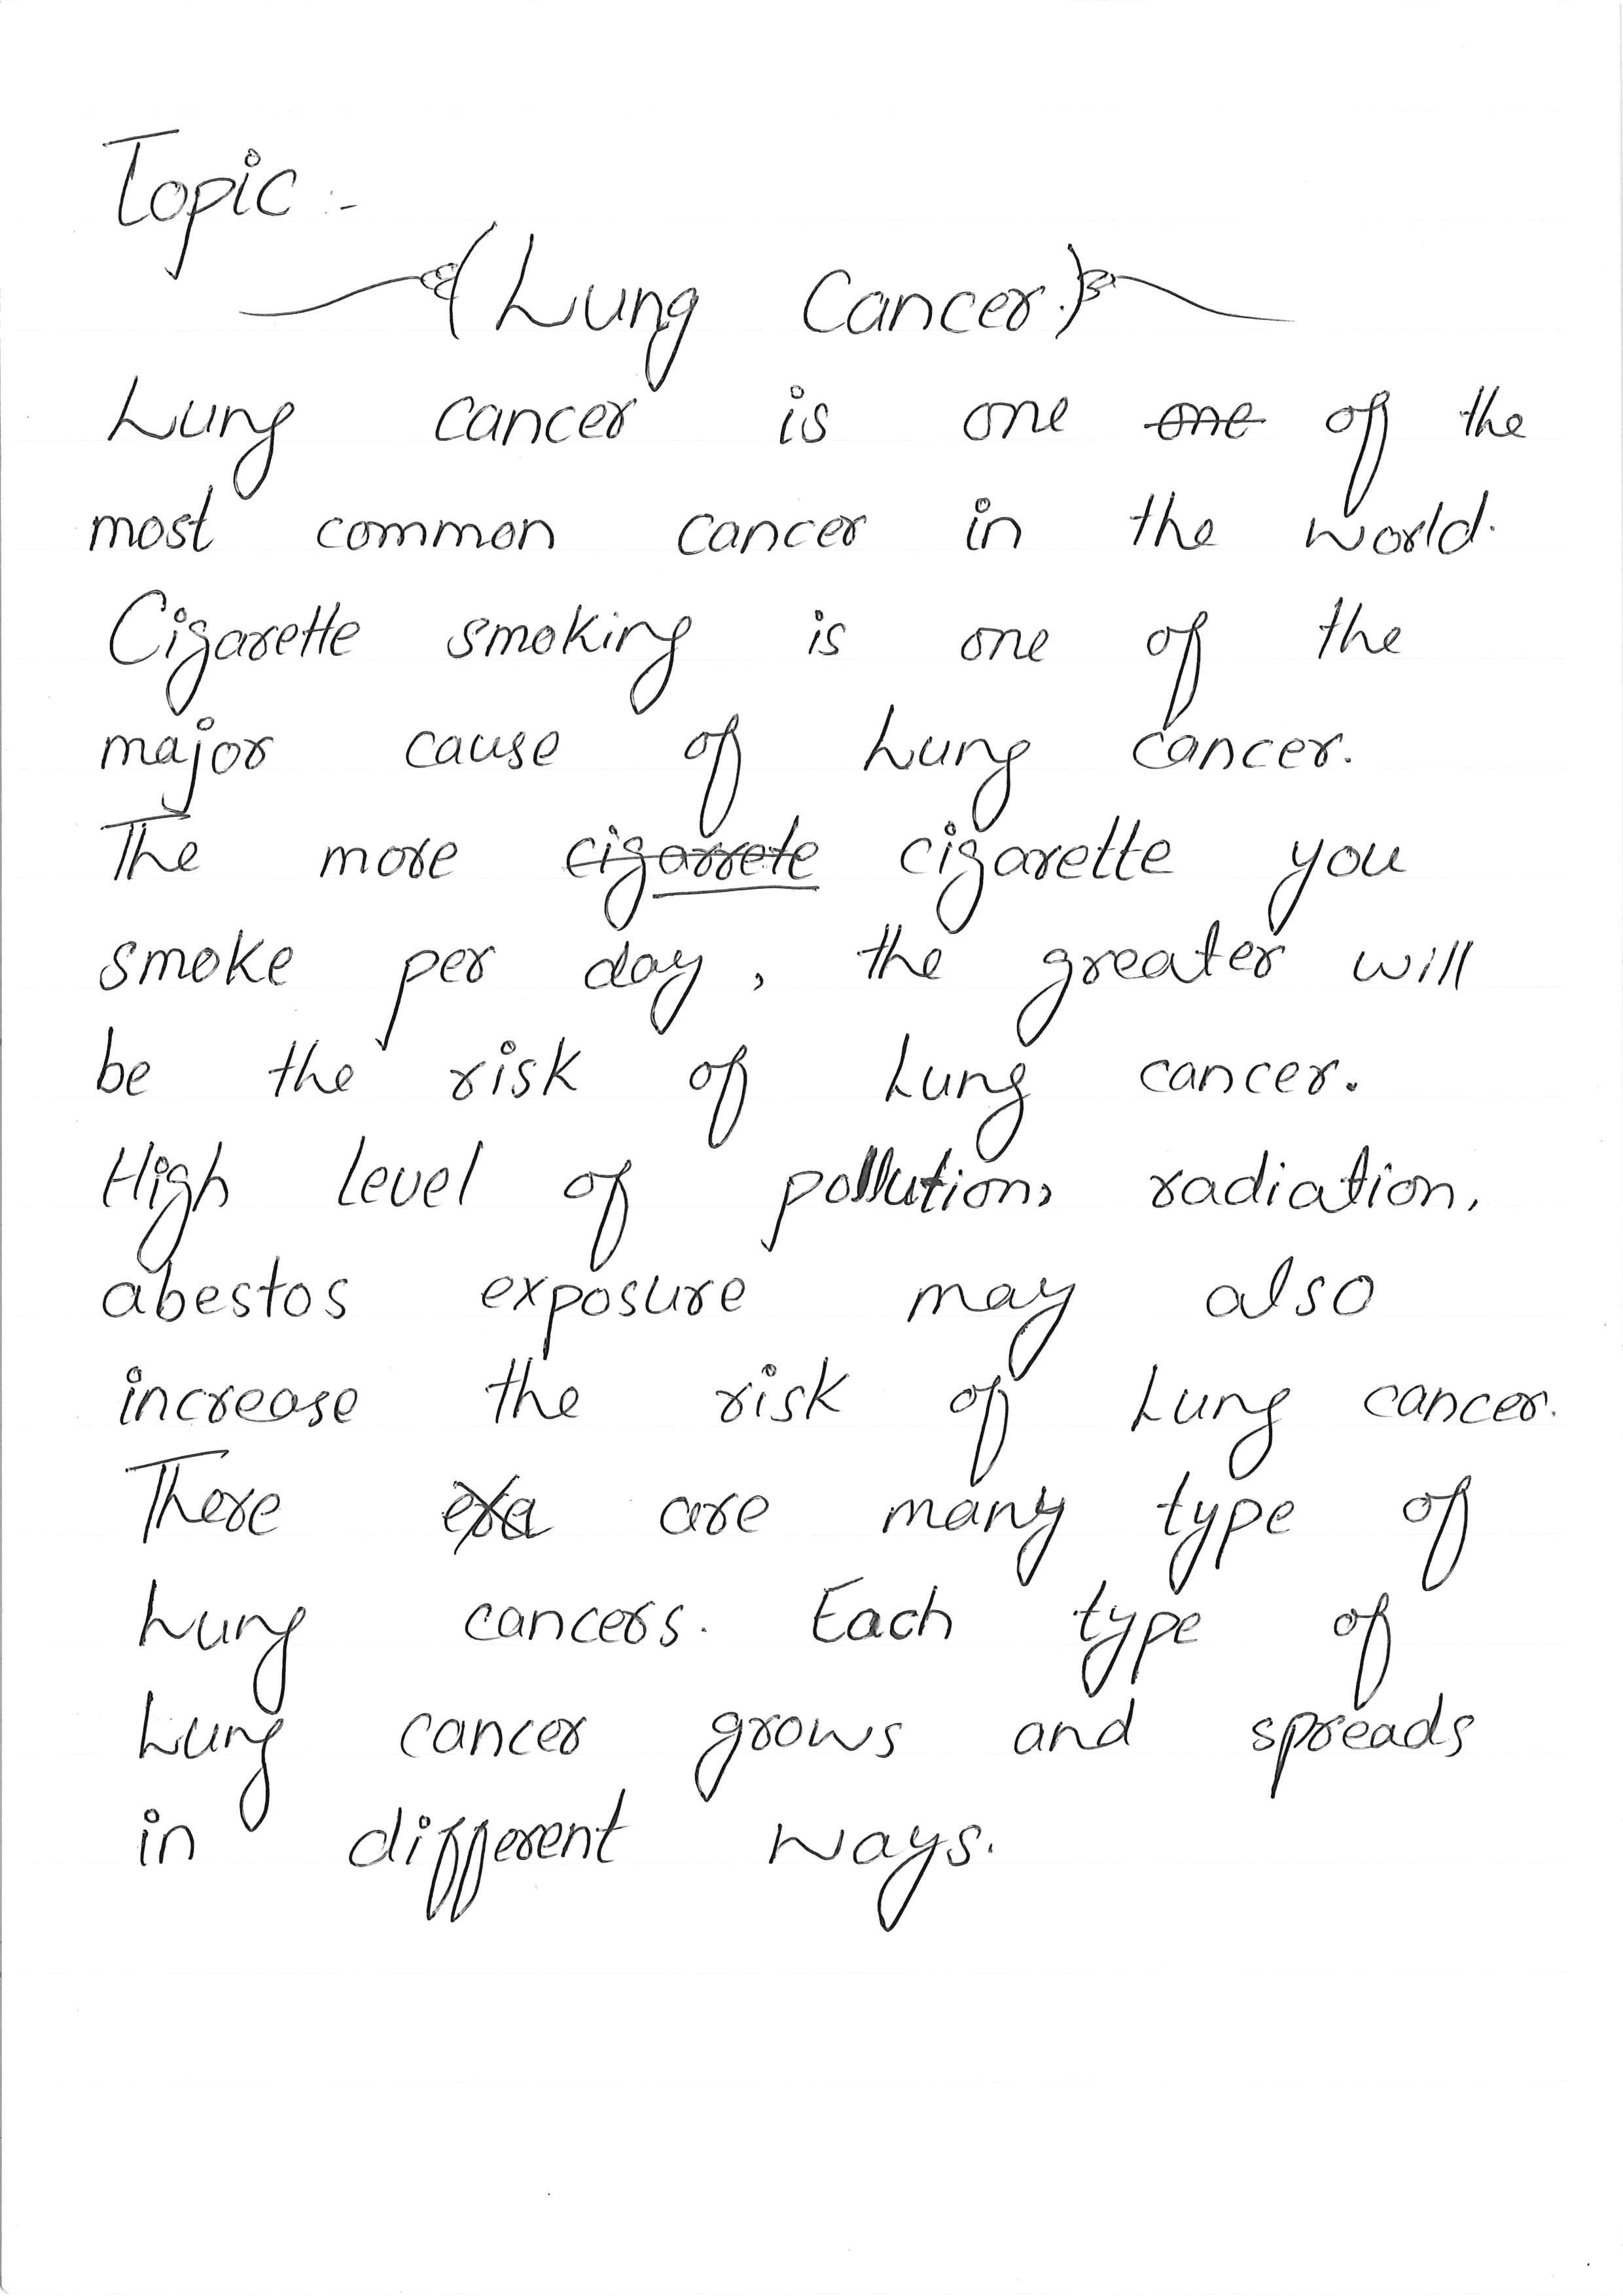 Topic :-
(Lung Cancer.)
Lung cancer is one one of the
most common cancer in the world.
Cigarette smoking is one of the
major cause of Lung cancer.
The more cigarrete cigarette you
smoke per day, the greater will
be the risk of Lung cancer.
High level of pollution, radiation,
abestos exposure may also
increase the risk of Lung cancer.
There are many type of
Lung cancers. Each type of
Lung cancer grows and spreads
in different ways.